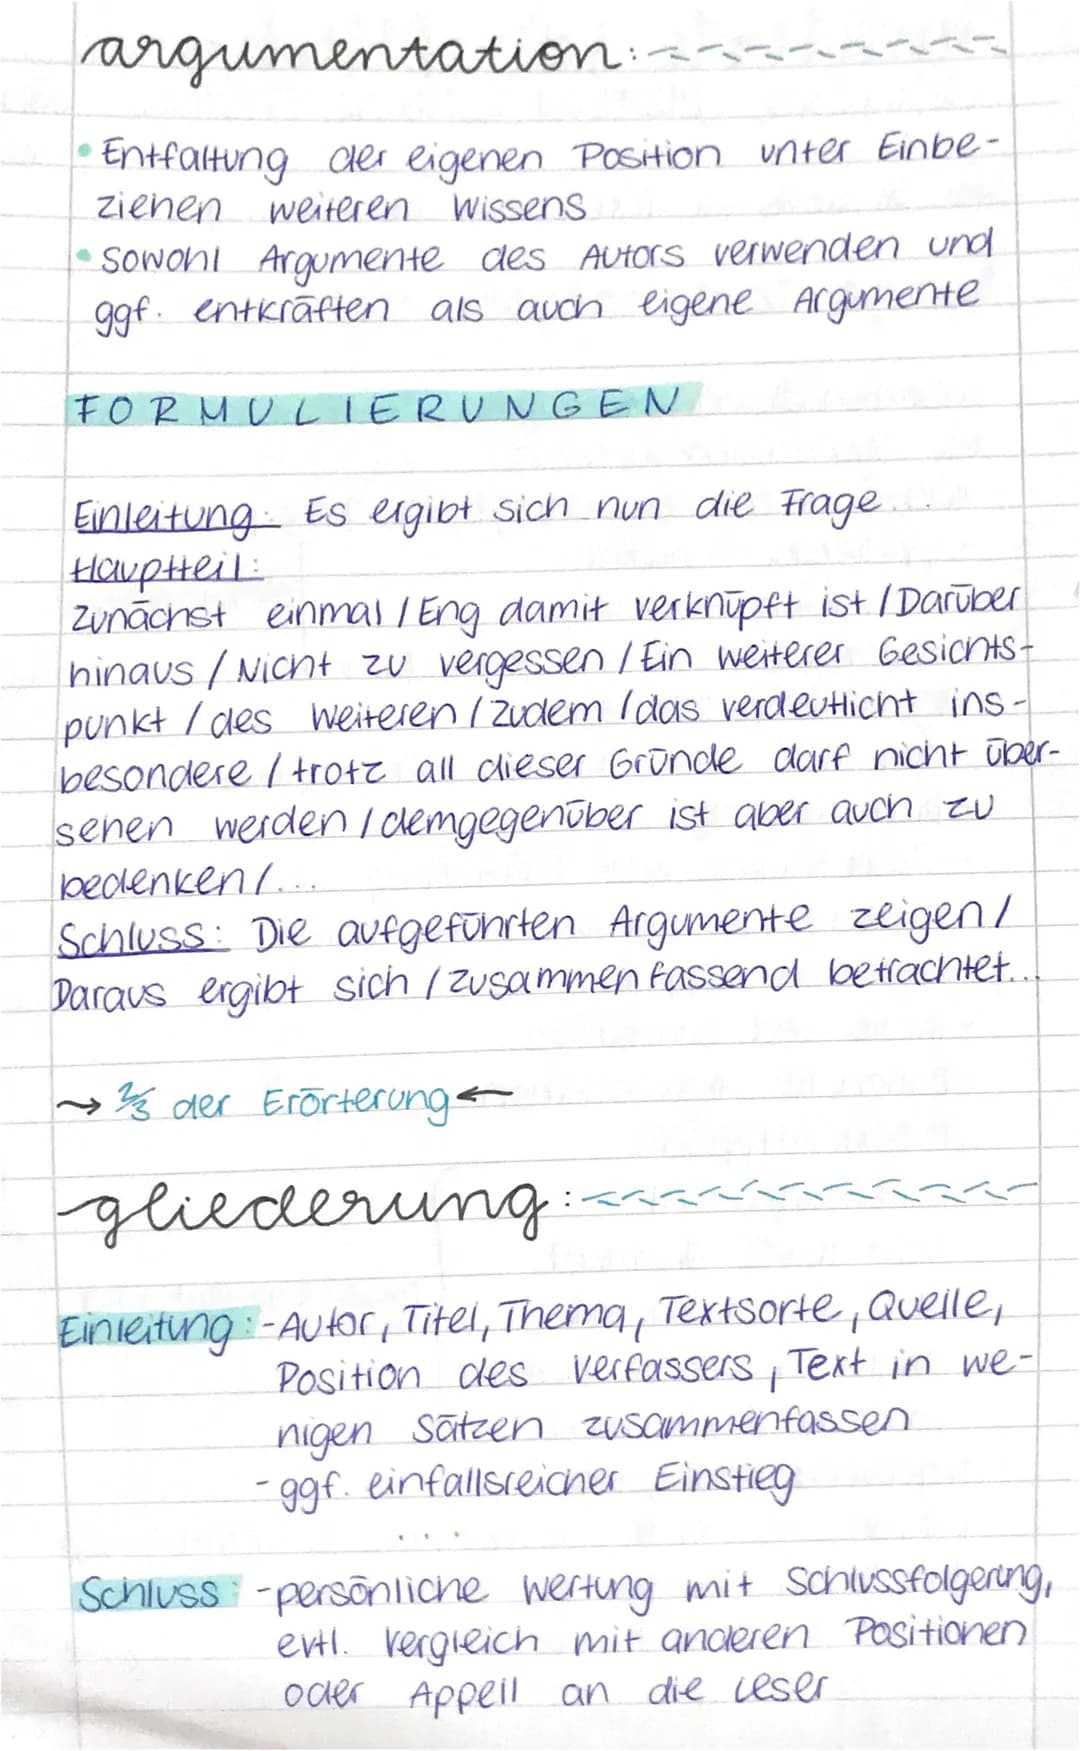 argumentation:
• Entfaltung der eigenen Position unter Einbe-
ziehen weiteren Wissens
• Sowohl Argumente des Autors verwenden und
ggf. entkräften als auch eigene Argumente
FORMULIERUNGEN
Einleitung: Es ergibt sich nun die Frage...
Hauptteil:
Zunächst einmal / Eng damit verknüpft ist / Darüber
hinaus / Nicht zu vergessen / Ein weiterer Gesichts-
punkt / des Weiteren / Zudem / das verdeutlicht ins-
besondere / trotz all dieser Gründe darf nicht über-
sehen werden / demgegenüber ist aber auch zu
bedenken /...
Schluss: Die aufgeführten Argumente zeigen /
Daraus ergibt sich / Zusammenfassend betrachtet...
→ 2/3 der Erörterung ←
gliederung:
Einleitung: - Autor, Titel, Thema, Textsorte, Quelle,
Position des Verfassers, Text in we-
nigen Sätzen zusammenfassen
- ggf. einfallsreicher Einstieg
...
Schluss: - persönliche Wertung mit Schlussfolgerung,
evtl. Vergleich mit anderen Positionen
oder Appell an die Leser